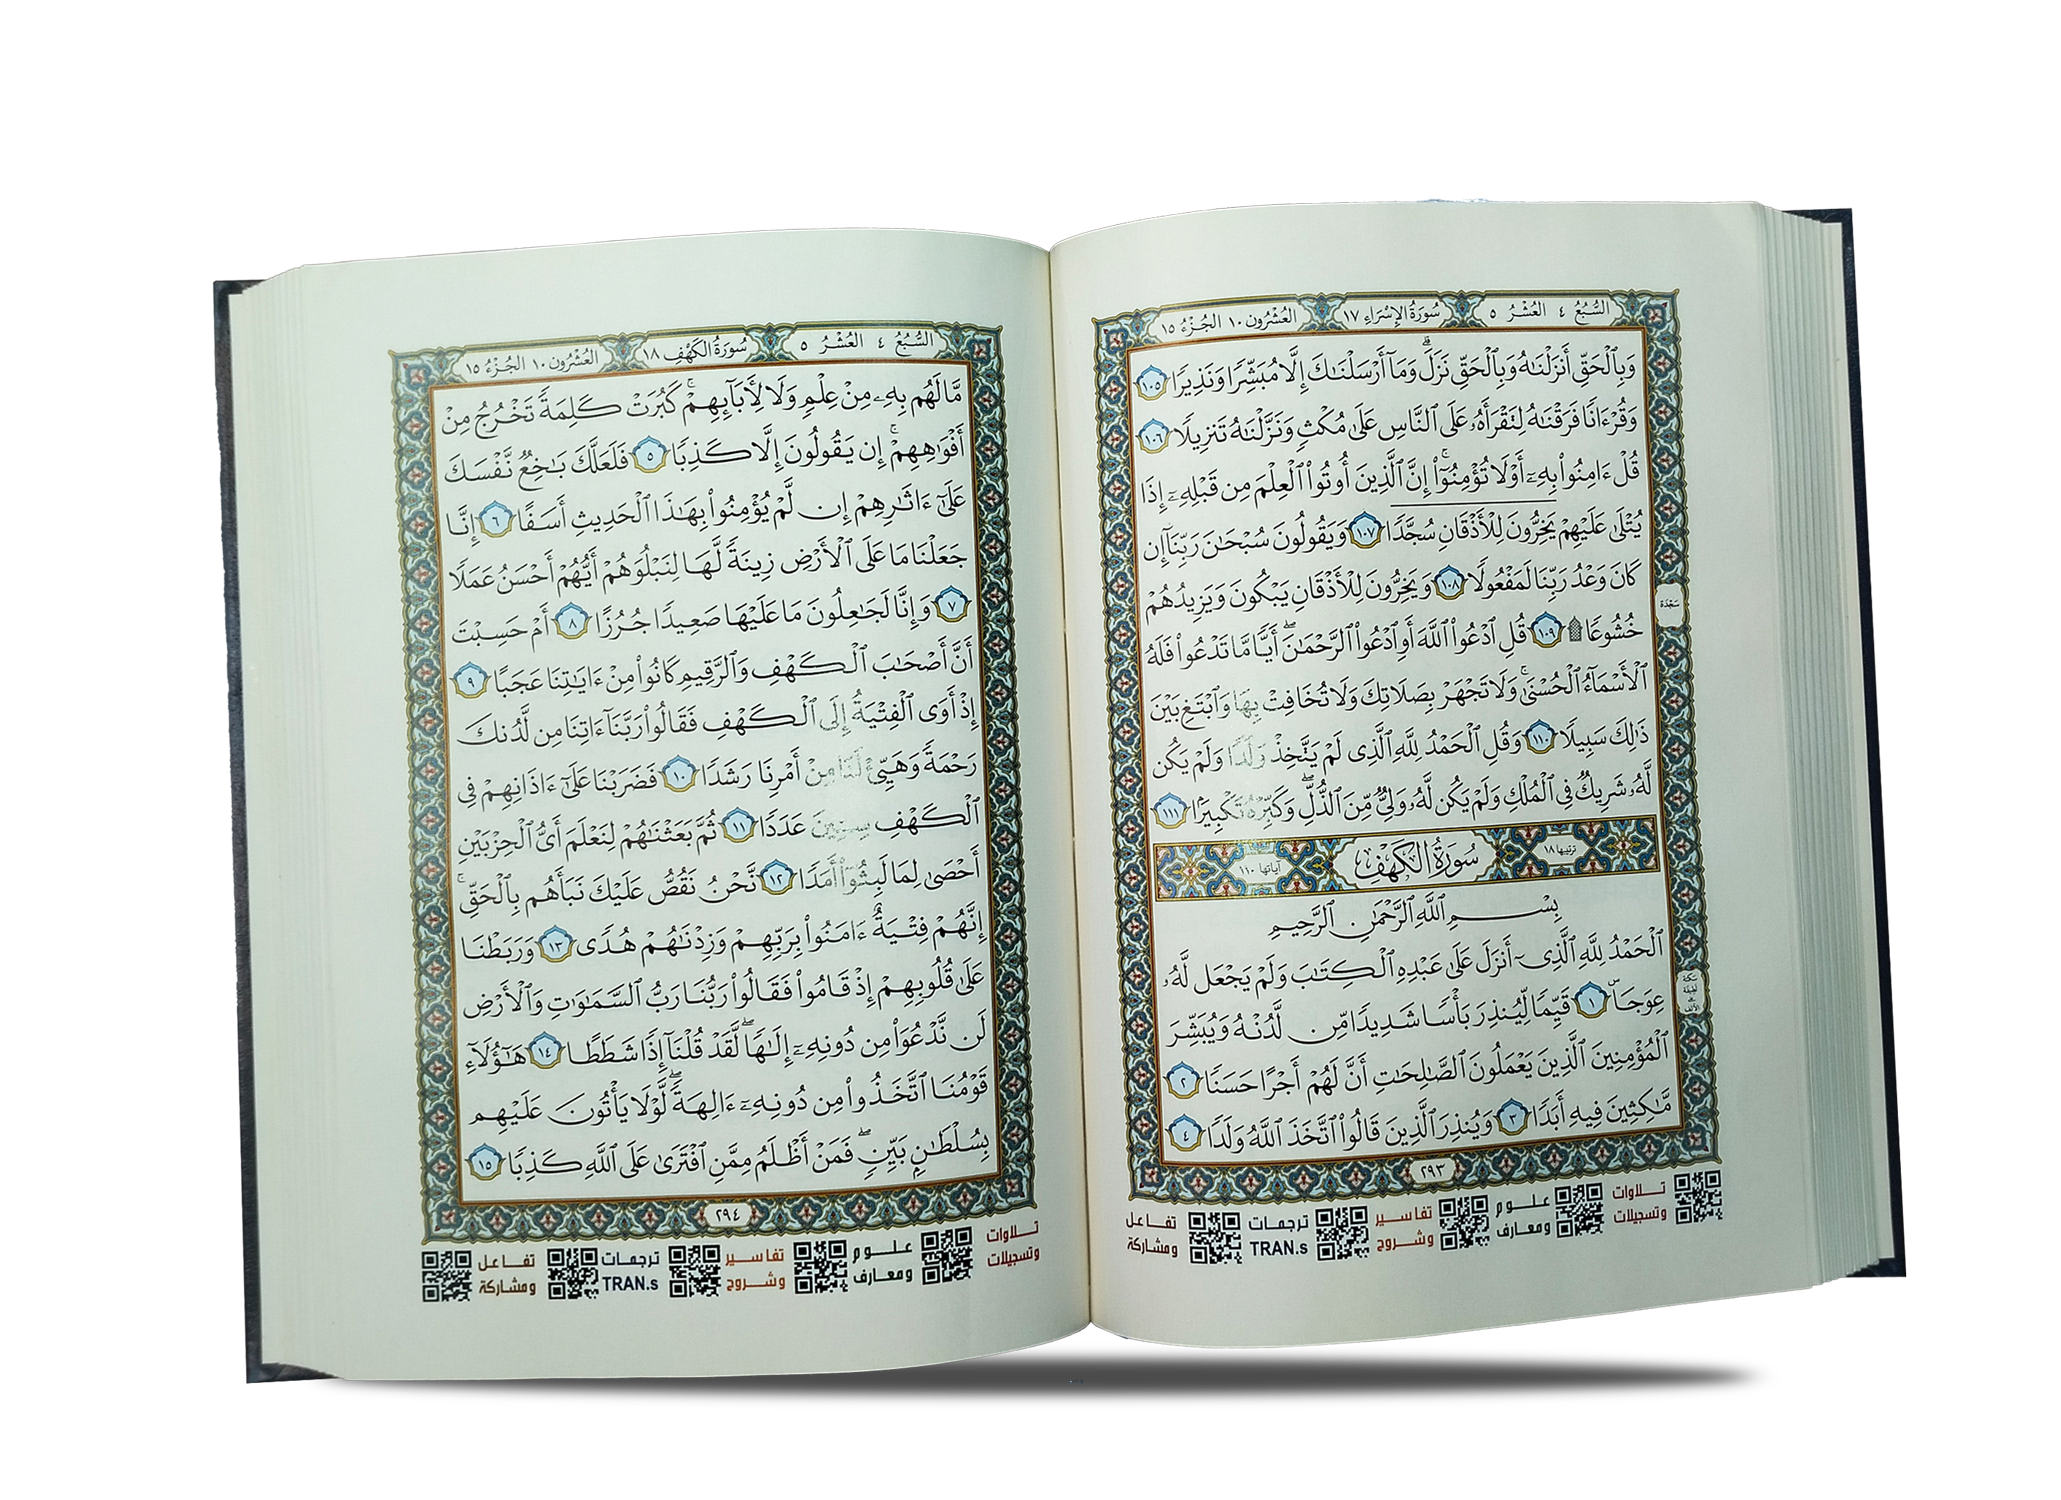 السُّبُعُ ٤ العُشْرُ ٥
سُورَةُ الإِسْرَاءِ ١٧
العُشْرُون ١٠ الجُزْءُ ١٥
وَبِٱلْحَقِّ أَنزَلْنَٰهُ وَبِٱلْحَقِّ نَزَلَۗ وَمَآ أَرْسَلْنَٰكَ إِلَّا مُبَشِّرًا وَنَذِيرًا ١٠٥
وَقُرْءَانًا فَرَقْنَٰهُ لِتَقْرَأَهُۥ عَلَى ٱلنَّاسِ عَلَىٰ مُكْثٍ وَنَزَّلْنَٰهُ تَنزِيلًا ١٠٦
قُلْ ءَامِنُوا۟ بِهِۦٓ أَوْ لَا تُؤْمِنُوٓا۟ۚ إِنَّ ٱلَّذِينَ أُوتُوا۟ ٱلْعِلْمَ مِن قَبْلِهِۦٓ إِذَا
يُتْلَىٰ عَلَيْهِمْ يَخِرُّونَ لِلْأَذْقَانِ سُجَّدًا ١٠٧ وَيَقُولُونَ سُبْحَٰنَ رَبِّنَآ إِن
كَانَ وَعْدُ رَبِّنَا لَمَفْعُولًا ١٠٨ وَيَخِرُّونَ لِلْأَذْقَانِ يَبْكُونَ وَيَزِيدُهُمْ
خُشُوعًا ۩ ١٠٩ قُلِ ٱدْعُوا۟ ٱللَّهَ أَوِ ٱدْعُوا۟ ٱلرَّحْمَٰنَۖ أَيًّا مَّا تَدْعُوا۟ فَلَهُ
ٱلْأَسْمَآءُ ٱلْحُسْنَىٰۚ وَلَا تَجْهَرْ بِصَلَاتِكَ وَلَا تُخَافِتْ بِهَا وَٱبْتَغِ بَيْنَ
ذَٰلِكَ سَبِيلًا ١١٠ وَقُلِ ٱلْحَمْدُ لِلَّهِ ٱلَّذِى لَمْ يَتَّخِذْ وَلَدًا وَلَمْ يَكُن
لَّهُۥ شَرِيكٌ فِى ٱلْمُلْكِ وَلَمْ يَكُن لَّهُۥ وَلِىٌّ مِّنَ ٱلذُّلِّۖ وَكَبِّرْهُ تَكْبِيرًۢا ١١١
ترتيبها ١٨ سُورَةُ الكَهْفِ آياتها ١١٠
بِسْمِ ٱللَّهِ ٱلرَّحْمَٰنِ ٱلرَّحِيمِ
ٱلْحَمْدُ لِلَّهِ ٱلَّذِىٓ أَنزَلَ عَلَىٰ عَبْدِهِ ٱلْكِتَٰبَ وَلَمْ يَجْعَل لَّهُۥ
عِوَجَاۜ ١ قَيِّمًا لِّيُنذِرَ بَأْسًا شَدِيدًا مِّن لَّدُنْهُ وَيُبَشِّرَ
ٱلْمُؤْمِنِينَ ٱلَّذِينَ يَعْمَلُونَ ٱلصَّٰلِحَٰتِ أَنَّ لَهُمْ أَجْرًا حَسَنًا ٢
مَّٰكِثِينَ فِيهِ أَبَدًا ٣ وَيُنذِرَ ٱلَّذِينَ قَالُوا۟ ٱتَّخَذَ ٱللَّهُ وَلَدًا ٤
سَجْدَة
سكتة
لطيفة
على
الألف
٢٩٣
تلاوات
وتسجيلات
علوم
ومعارف
تفاسير
وشروح
ترجمات
TRAN.s
تفاعل
ومشاركة
السُّبُعُ ٤ العُشْرُ ٥
سُورَةُ الكَهْفِ ١٨
العُشْرُون ١٠ الجُزْءُ ١٥
مَّا لَهُم بِهِۦ مِنْ عِلْمٍ وَلَا لِءَابَآئِهِمْۚ كَبُرَتْ كَلِمَةً تَخْرُجُ مِنْ
أَفْوَٰهِهِمْۚ إِن يَقُولُونَ إِلَّا كَذِبًا ٥ فَلَعَلَّكَ بَٰخِعٌ نَّفْسَكَ
عَلَىٰٓ ءَاثَٰرِهِمْ إِن لَّمْ يُؤْمِنُوا۟ بِهَٰذَا ٱلْحَدِيثِ أَسَفًا ٦ إِنَّا
جَعَلْنَا مَا عَلَى ٱلْأَرْضِ زِينَةً لَّهَا لِنَبْلُوَهُمْ أَيُّهُمْ أَحْسَنُ عَمَلًا
٧ وَإِنَّا لَجَٰعِلُونَ مَا عَلَيْهَا صَعِيدًا جُرُزًا ٨ أَمْ حَسِبْتَ
أَنَّ أَصْحَٰبَ ٱلْكَهْفِ وَٱلرَّقِيمِ كَانُوا۟ مِنْ ءَايَٰتِنَا عَجَبًا ٩
إِذْ أَوَى ٱلْفِتْيَةُ إِلَى ٱلْكَهْفِ فَقَالُوا۟ رَبَّنَآ ءَاتِنَا مِن لَّدُنكَ
رَحْمَةً وَهَيِّئْ لَنَا مِنْ أَمْرِنَا رَشَدًا ١٠ فَضَرَبْنَا عَلَىٰٓ ءَاذَانِهِمْ فِى
ٱلْكَهْفِ سِنِينَ عَدَدًا ١١ ثُمَّ بَعَثْنَٰهُمْ لِنَعْلَمَ أَىُّ ٱلْحِزْبَيْنِ
أَحْصَىٰ لِمَا لَبِثُوٓا۟ أَمَدًا ١٢ نَّحْنُ نَقُصُّ عَلَيْكَ نَبَأَهُم بِٱلْحَقِّۚ
إِنَّهُمْ فِتْيَةٌ ءَامَنُوا۟ بِرَبِّهِمْ وَزِدْنَٰهُمْ هُدًى ١٣ وَرَبَطْنَا
عَلَىٰ قُلُوبِهِمْ إِذْ قَامُوا۟ فَقَالُوا۟ رَبُّنَا رَبُّ ٱلسَّمَٰوَٰتِ وَٱلْأَرْضِ
لَن نَّدْعُوَا۟ مِن دُونِهِۦٓ إِلَٰهًاۖ لَّقَدْ قُلْنَآ إِذًا شَطَطًا ١٤ هَٰٓؤُلَآءِ
قَوْمُنَا ٱتَّخَذُوا۟ مِن دُونِهِۦٓ ءَالِهَةًۖ لَّوْلَا يَأْتُونَ عَلَيْهِم
بِسُلْطَٰنٍۭ بَيِّنٍۖ فَمَنْ أَظْلَمُ مِمَّنِ ٱفْتَرَىٰ عَلَى ٱللَّهِ كَذِبًا ١٥
٢٩٤
تلاوات
وتسجيلات
علوم
ومعارف
تفاسير
وشروح
ترجمات
TRAN.s
تفاعل
ومشاركة